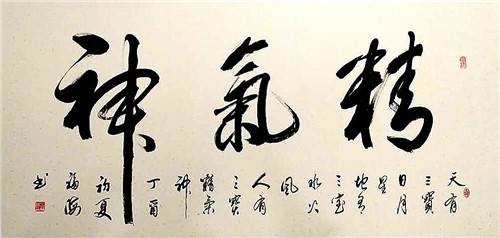 精氣神
天有
三寶
日月
星
地有
三宝
水火
風
人有
三寶
精氣
神
丁酉
初夏
福海
书